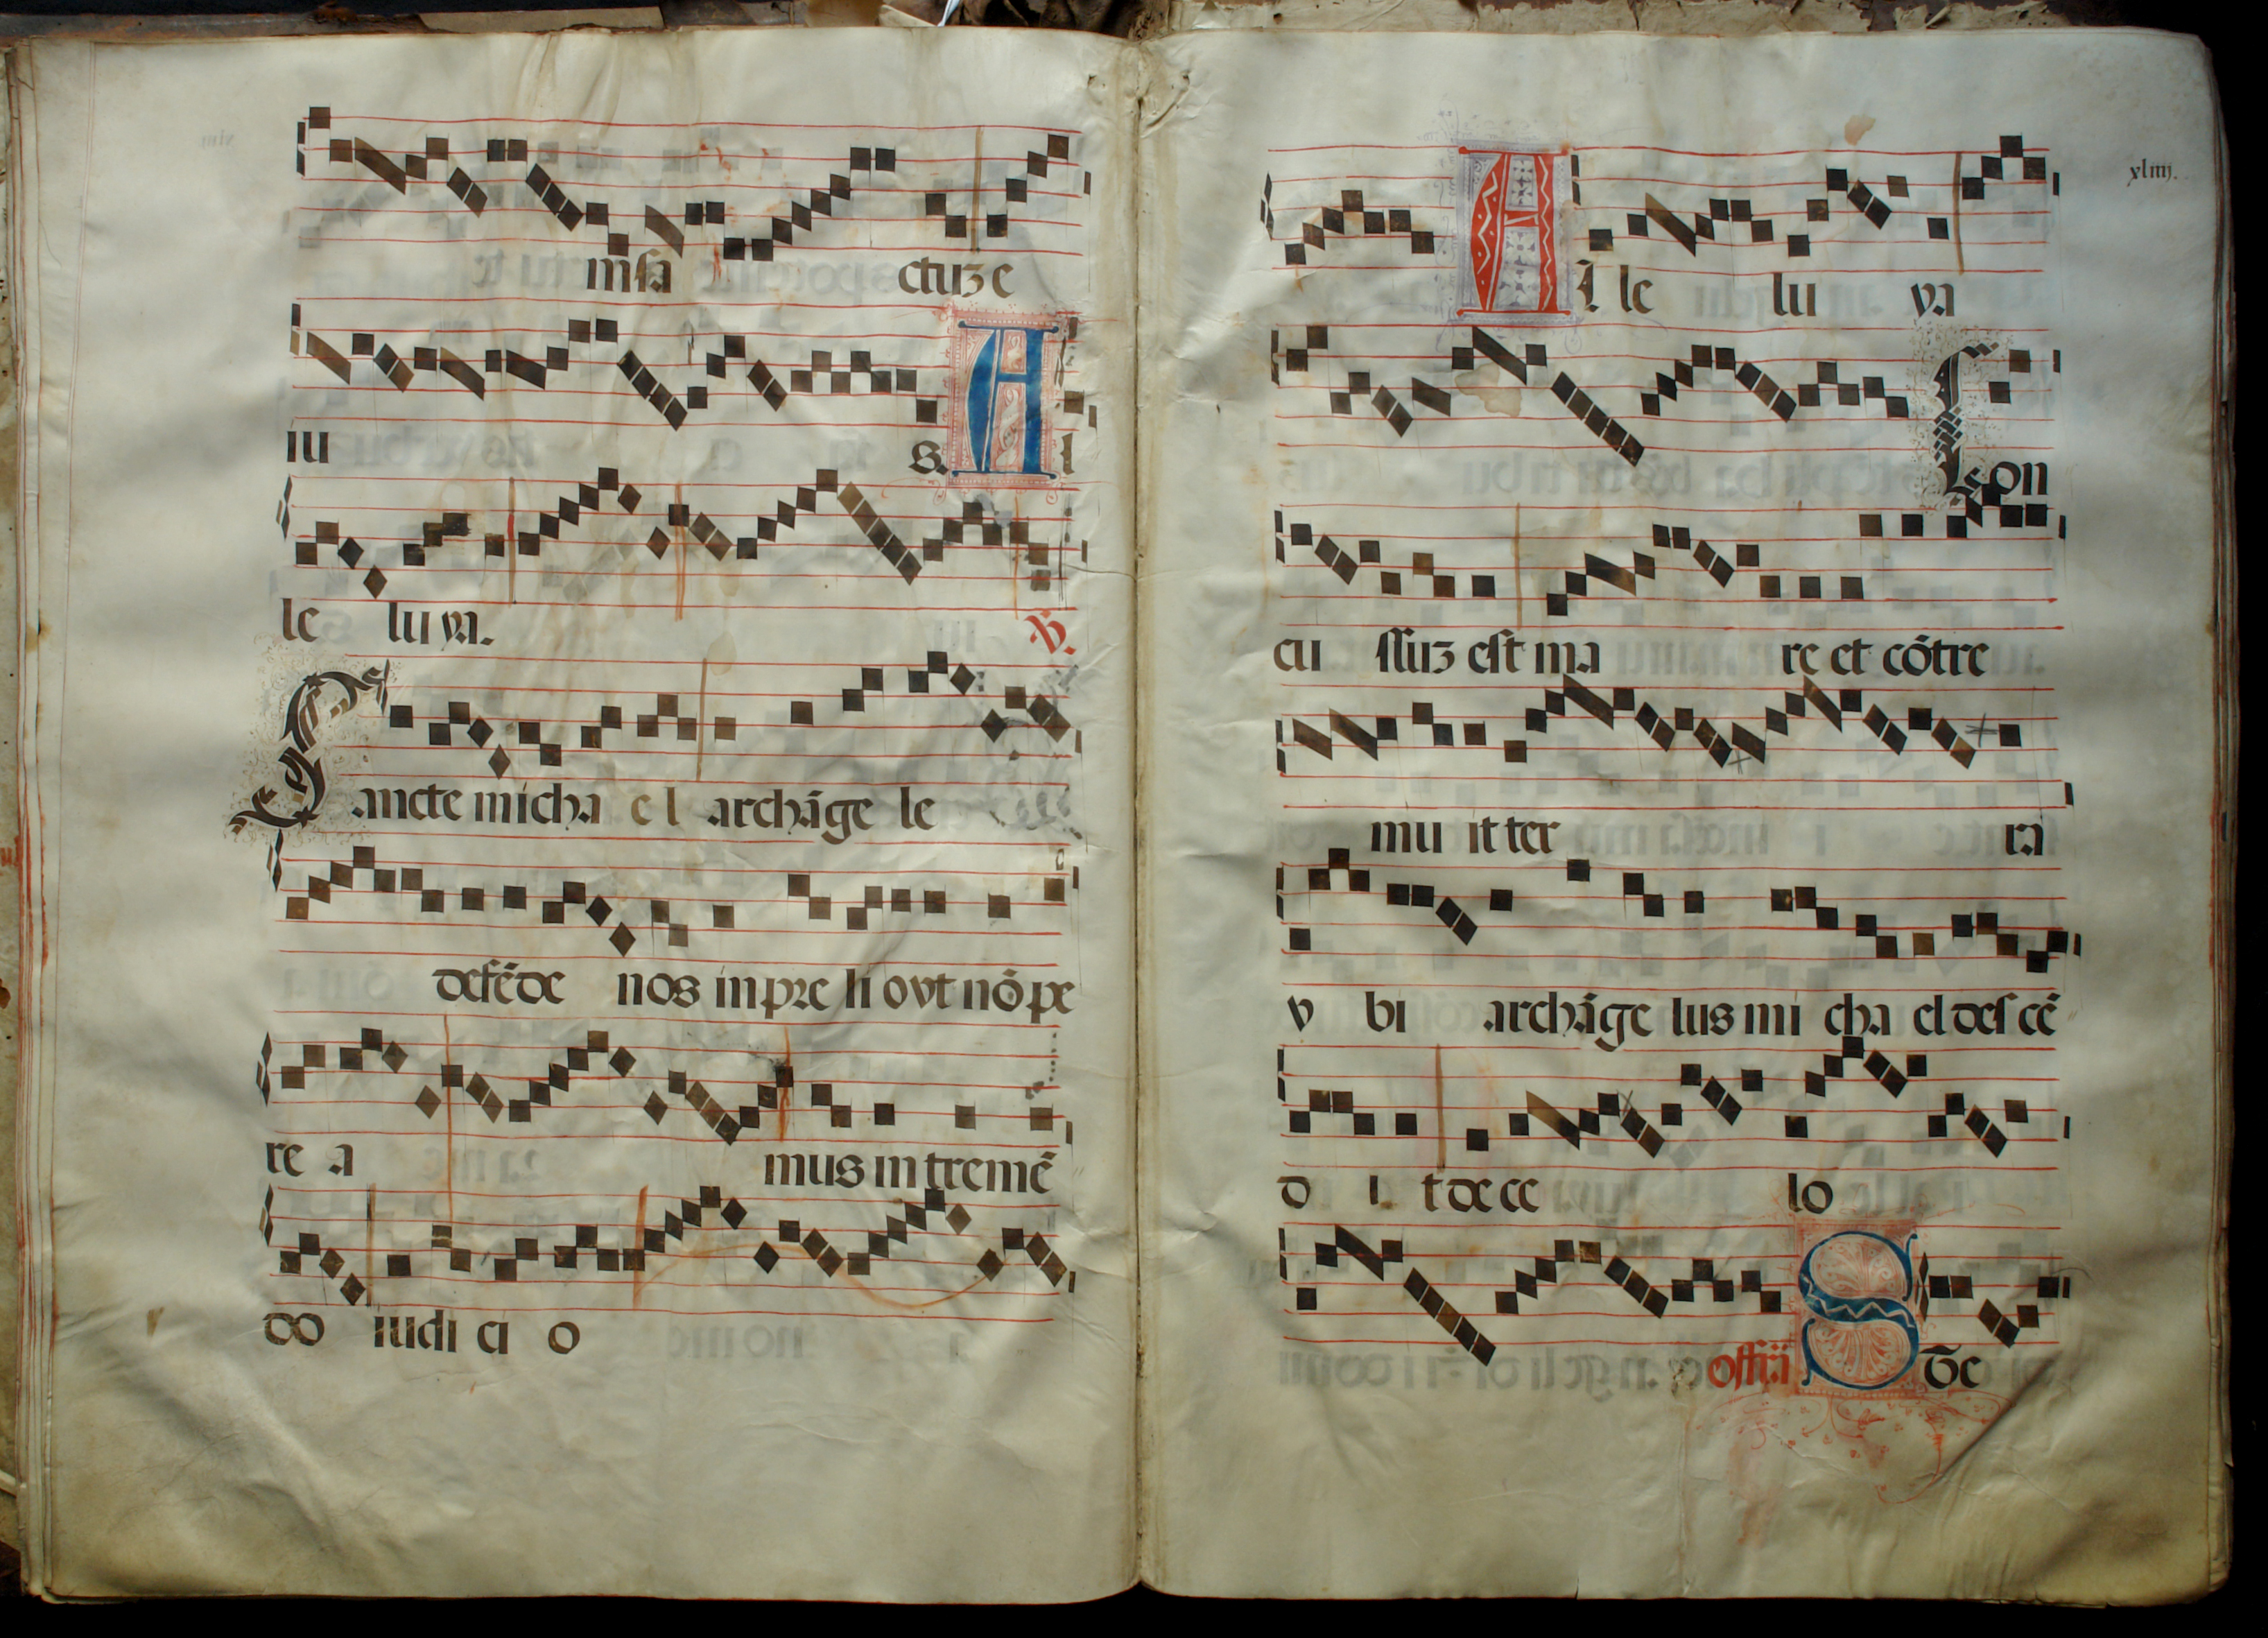 m sa ctuʒ e
iu s. A l
le lu ya. ℣.
Sancte micha e l archāge le
defēde nos in pre li o vt nō pe
re a mus in tremē
do iudi ci o
xliiij.
A l le lu ya
Con
cu ssuʒ est ma re et cōtre
mu it ter ra
v bi archāge lus mi cha el des cē
d i t de ce lo
offīa S te